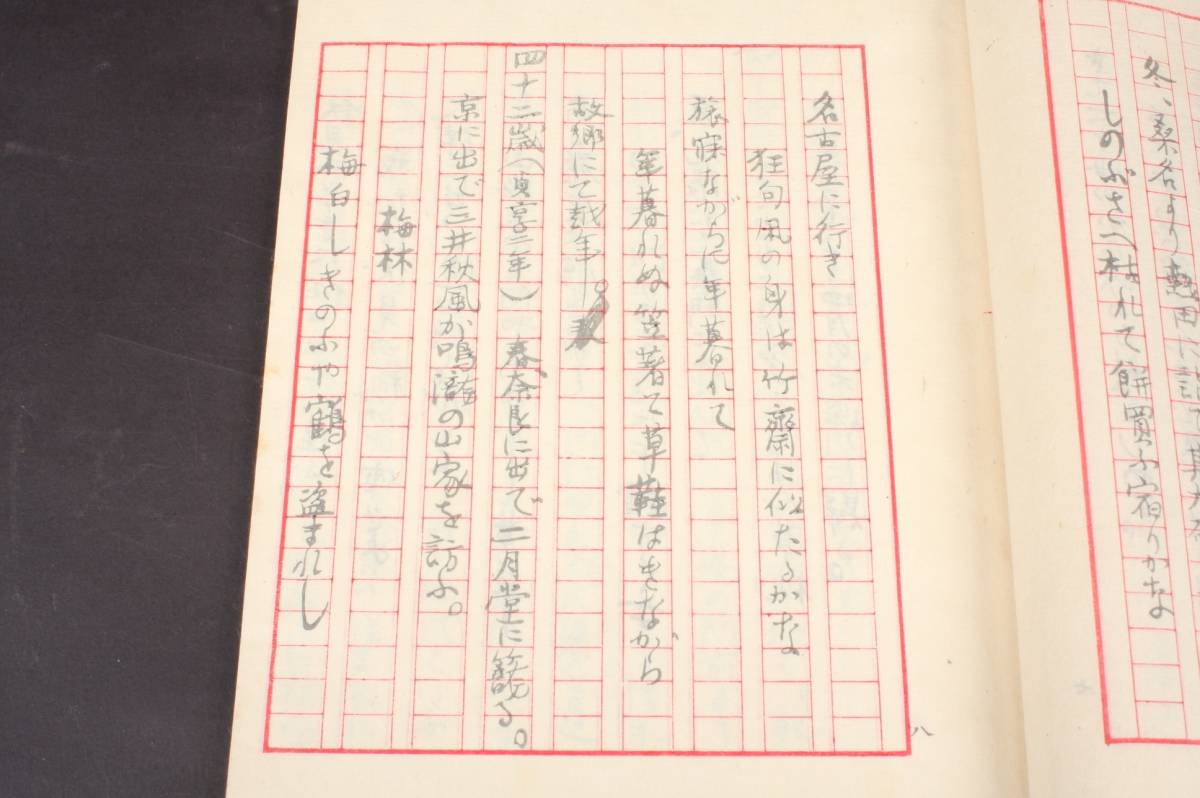 冬、桑名より熱田に詣
しのぶさへ枯れて餅買ふ宿りかな
名古屋に行き
狂句凩の身は竹齋に似たるかな
旅寐ながらに年暮れて
年暮れぬ笠着て草鞋はきながら
故郷にて越年。
四十二歳(貞享二年) 春奈良に出で二月堂に籠る。
京に出で三井秋風が鳴瀧の山家を訪ふ。
梅林
梅白しきのふや鶴を盗まれし
八